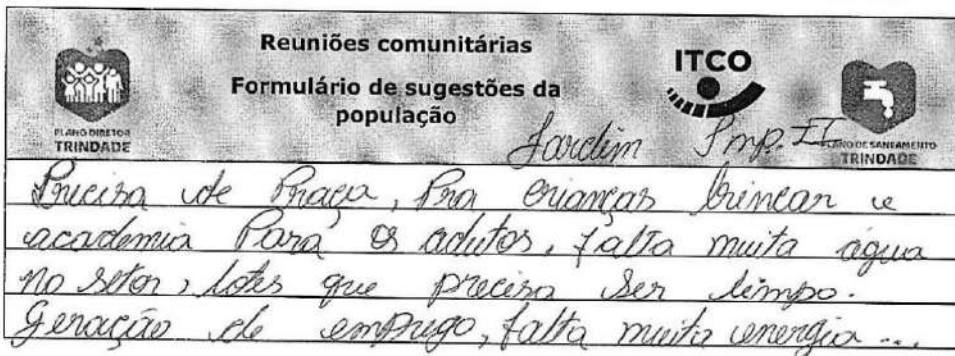 Reuniões comunitárias
Formulário de sugestões da
população
PLANO DIRETOR
TRINDADE
ITCO
PLANO DE SANEAMENTO
TRINDADE
Jardim Imp. II
Precisa de Praça, Pra crianças brincar e
academia Para os adutos, falta muita água
no setor, lotes que precisa ser limpo.
Geração de emprego, falta muita energia ...